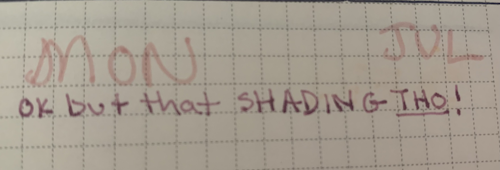 MON JUL
OK but that SHADING THO!